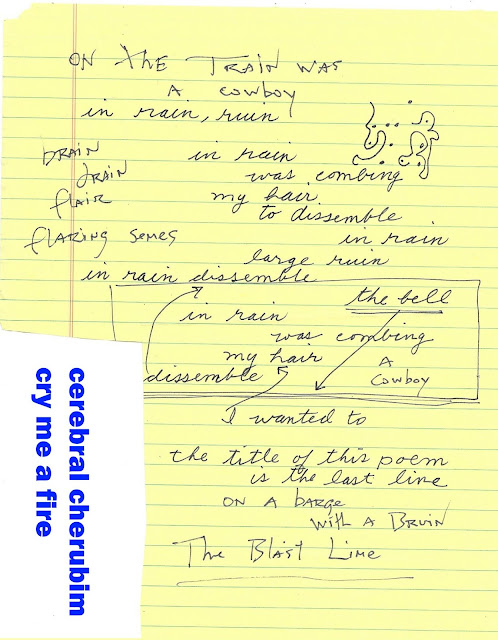 ON THE TRAIN WAS
A COWBOY
in rain, ruin
BRAIN
in rain
DRAIN
was combing
FLAIR
my hair
to dissemble
FLARING SEMES
in rain
large ruin
in rain dissemble
the bell
in rain
was combing
my hair
A
dissemble
COWBOY
I wanted to
the title of this poem
is the last line
ON A BARGE
WITH A BRUIN
THE BLAST LIME
cerebral cherubim
cry me a fire